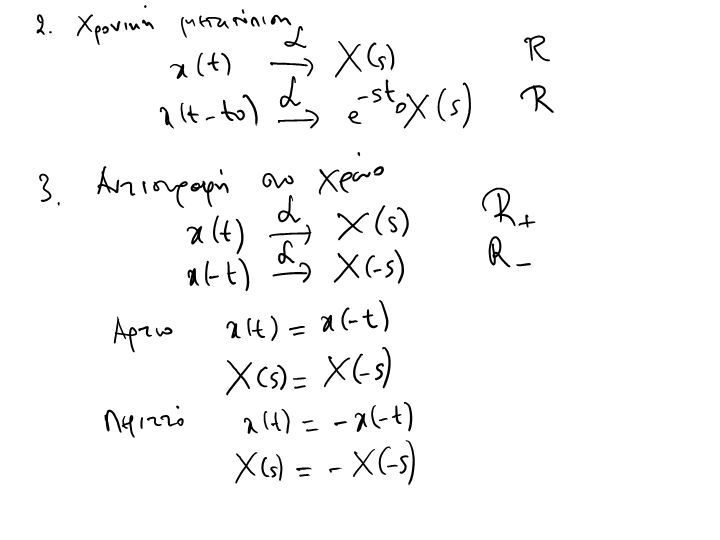 2. Χρονική μετατόπιση
x(t) ℒ→ X(s) R
x(t-t0) ℒ→ e^{-st0}X(s) R
3. Αντιστροφή στο χρόνο
x(t) ℒ→ X(s) R+
x(-t) ℒ→ X(-s) R-
Άρτιο x(t) = x(-t)
X(s) = X(-s)
Περιττό x(t) = -x(-t)
X(s) = -X(-s)